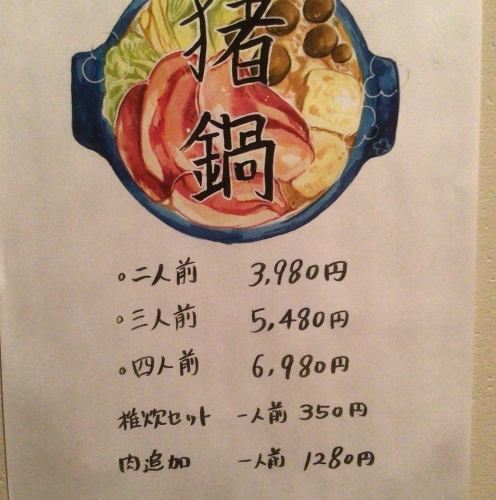 猪
鍋
○二人前 3,980円
○三人前 5,480円
○四人前 6,980円
椎炊セット 一人前 350円
肉追加 一人前 1280円